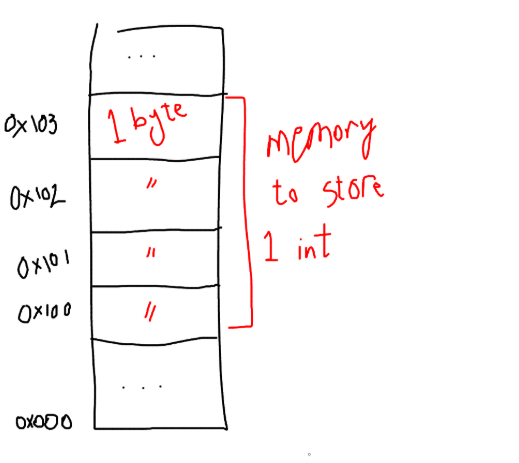 ...
0x103
1 byte
0x102
"
0x101
"
0x100
"
...
0x000
memory
to store
1 int